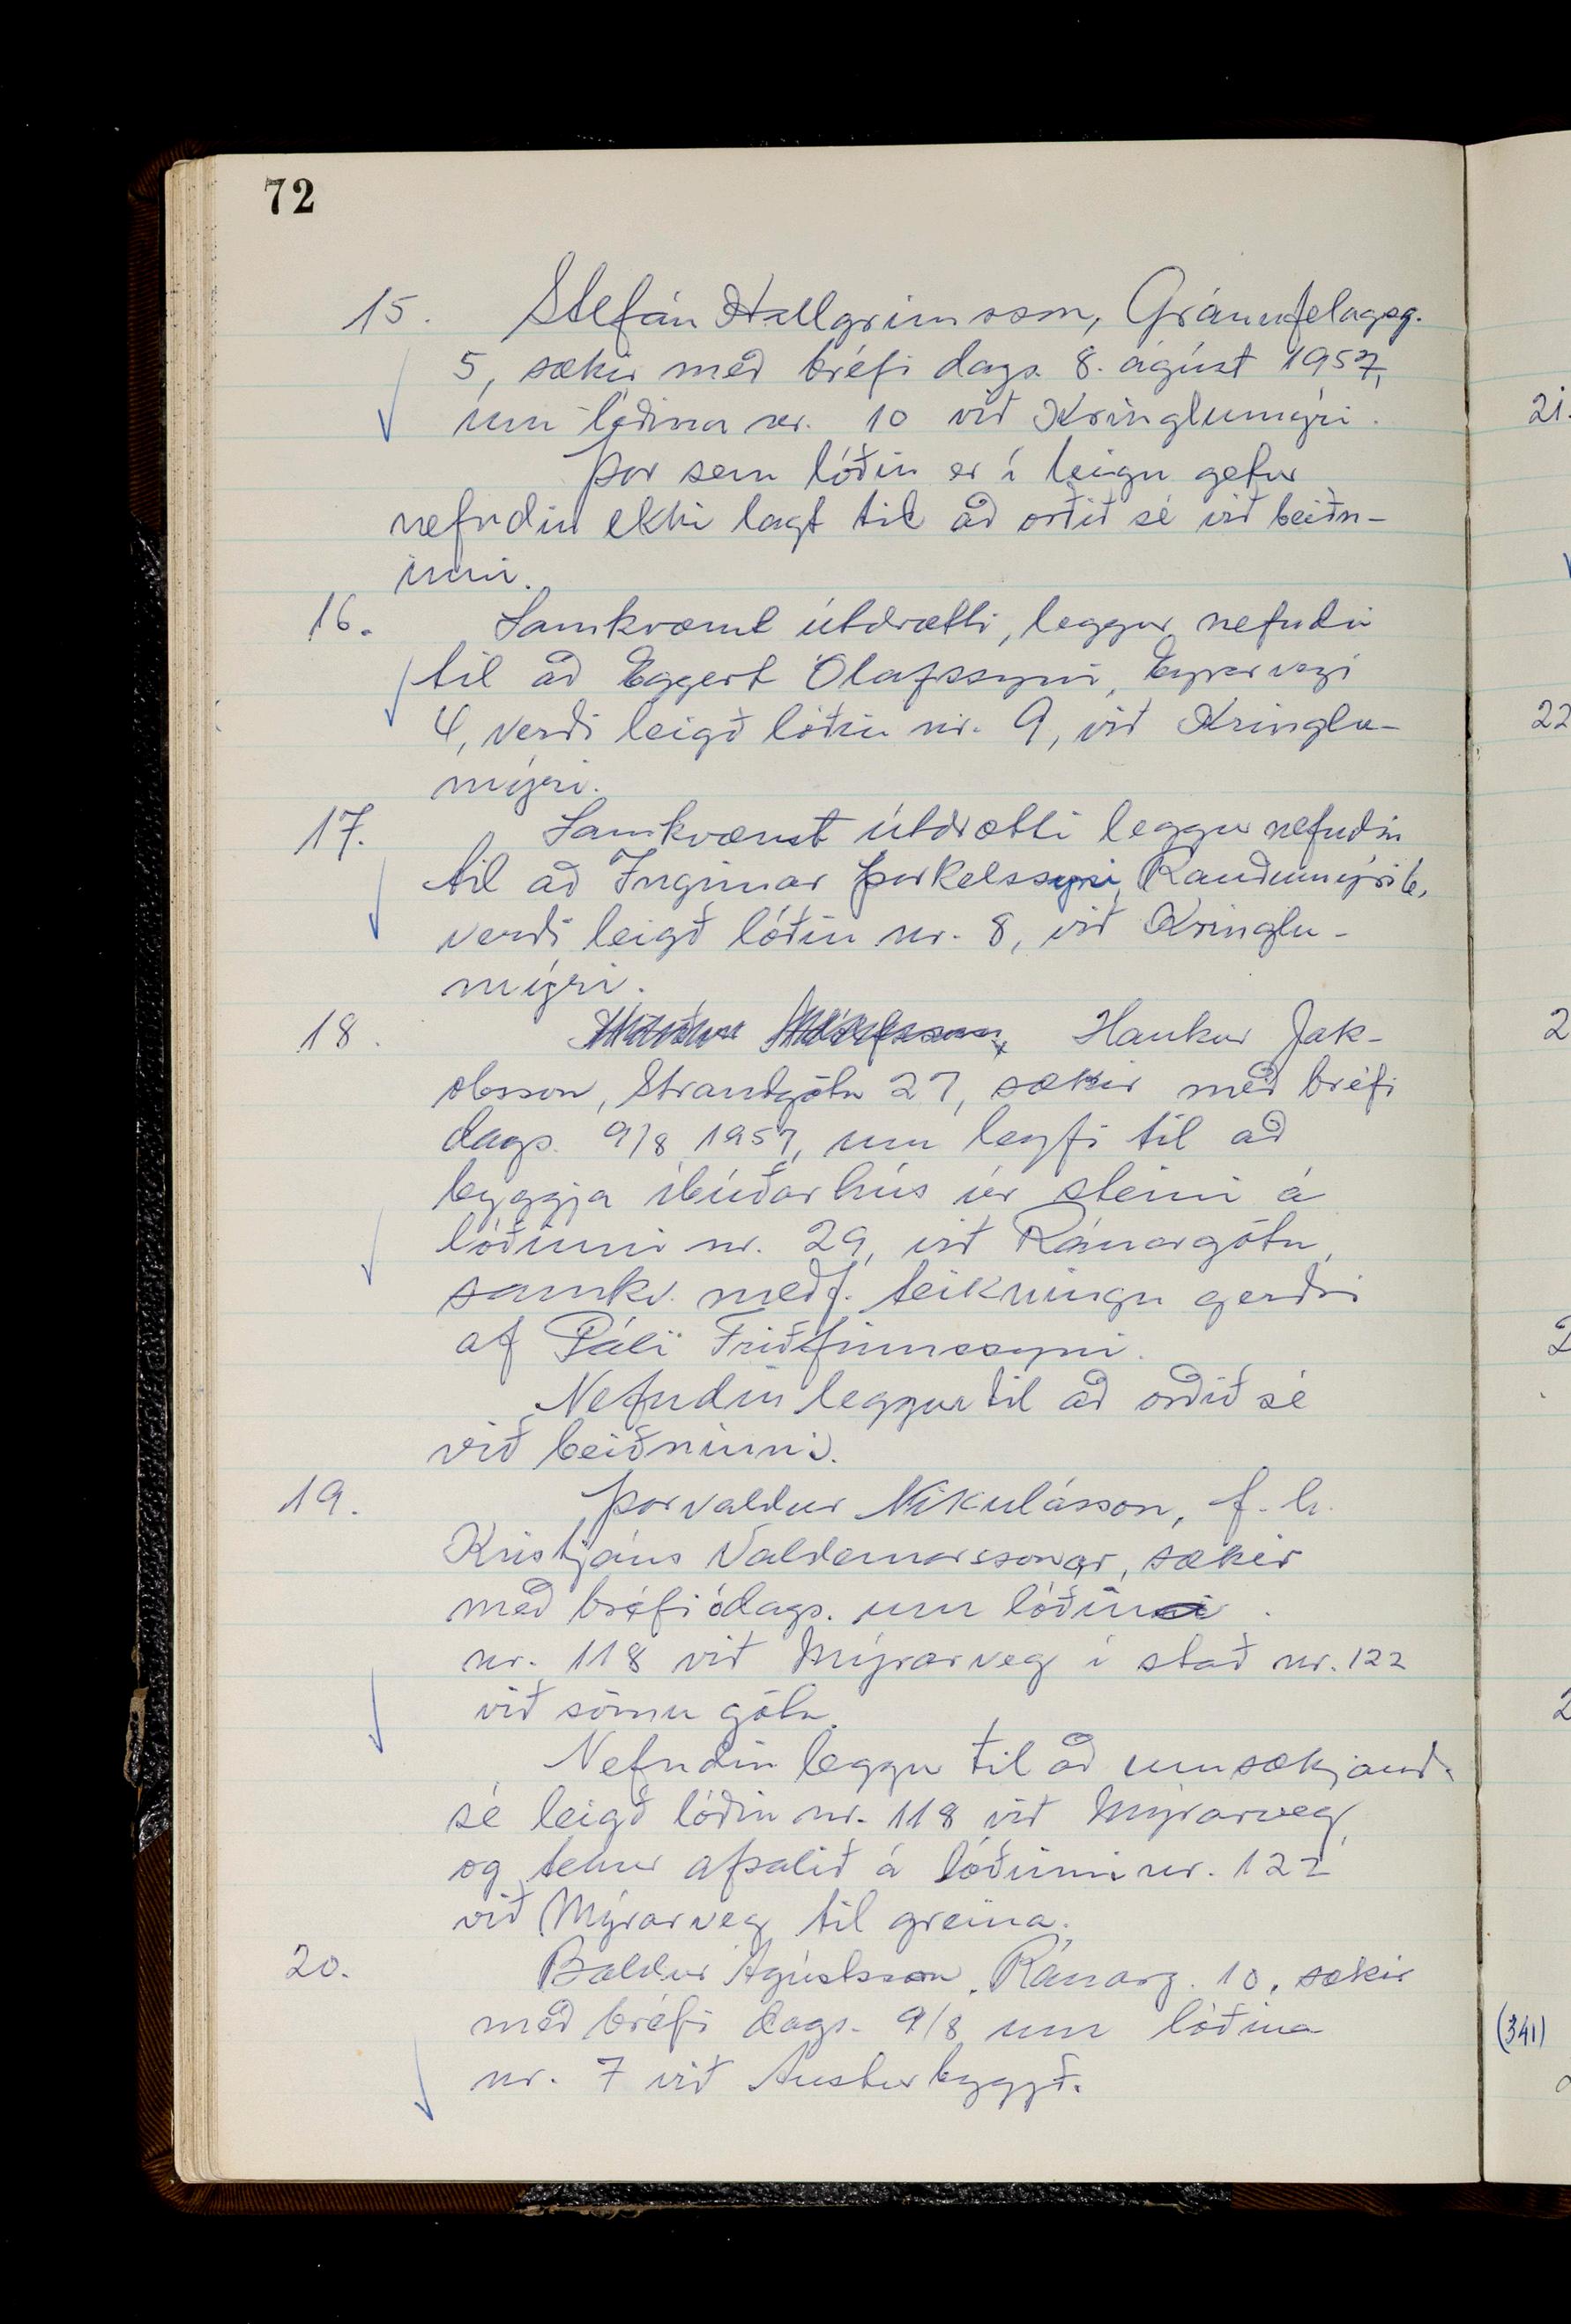 72
15. Stefán Hallgrímsson, Gránufélagsg.
5, sækir með bréfi dags. 8. ágúst 1957,
um lóðina nr. 10 við Kringlumýri.
Þar sem lóðin er í leigu getur
nefndin ekki lagt til að orðið sé við beiðn-
inni.
16. Samkvæmt útdrætti, leggur nefndin
til að Eggert Ólafssyni, Eyrarvegi
4, verði leigð lóðin nr. 9, við Kringlu-
mýri.
17. Samkvæmt útdrætti leggur nefndin
til að Ingimar Þorkelssyni, Rauðumýri
verði leigð lóðin nr. 8, við Kringlu-
mýri.
18. Haukur Jak-
obsson, Strandgötu 27, sækir með bréfi
dags. 9/8 1957, um leyfi til að
byggja íbúðarhús úr steini á
lóðinni nr. 29, við Ránargötu,
samkv. meðf. teikningu gerðri
af Páli Friðfinnssyni.
Nefndin leggur til að orðið sé
við beiðninni.
19. Þorvaldur Nikulásson, f.h.
Kristjáns Valdemarssonar, sækir
með bréfi ódags. um lóðina
nr. 118 við Mýrarveg í stað nr. 122
við sömu götu.
Nefndin leggur til að umsækjand.
sé leigð lóðin nr. 118 við Mýrarveg,
og tekur afsalið á lóðinni nr. 122
við Mýrarveg til greina.
20. Baldur Ágústsson, Ránarg. 10, sækir
með bréfi dags. 9/8 um lóðina
nr. 7 við Austurbyggð.
21.
22
2
2
(341)